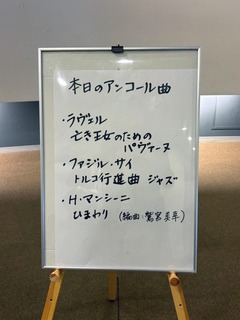 本日のアンコール曲
・ラヴェル
亡き王女のための
パヴァーヌ
・ファジル・サイ
トルコ行進曲 ジャズ
・H・マンシーニ
ひまわり (編曲:鷲宮美幸)